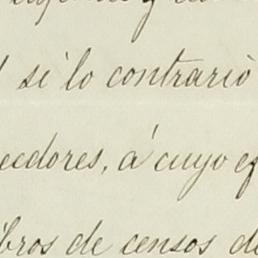 si lo contrario
eedores, á cuyo ef
bros de censos de